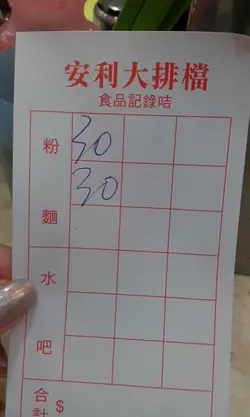 安利大排檔
食品記錄咭
粉 30
30
麵
水
吧
合計 $